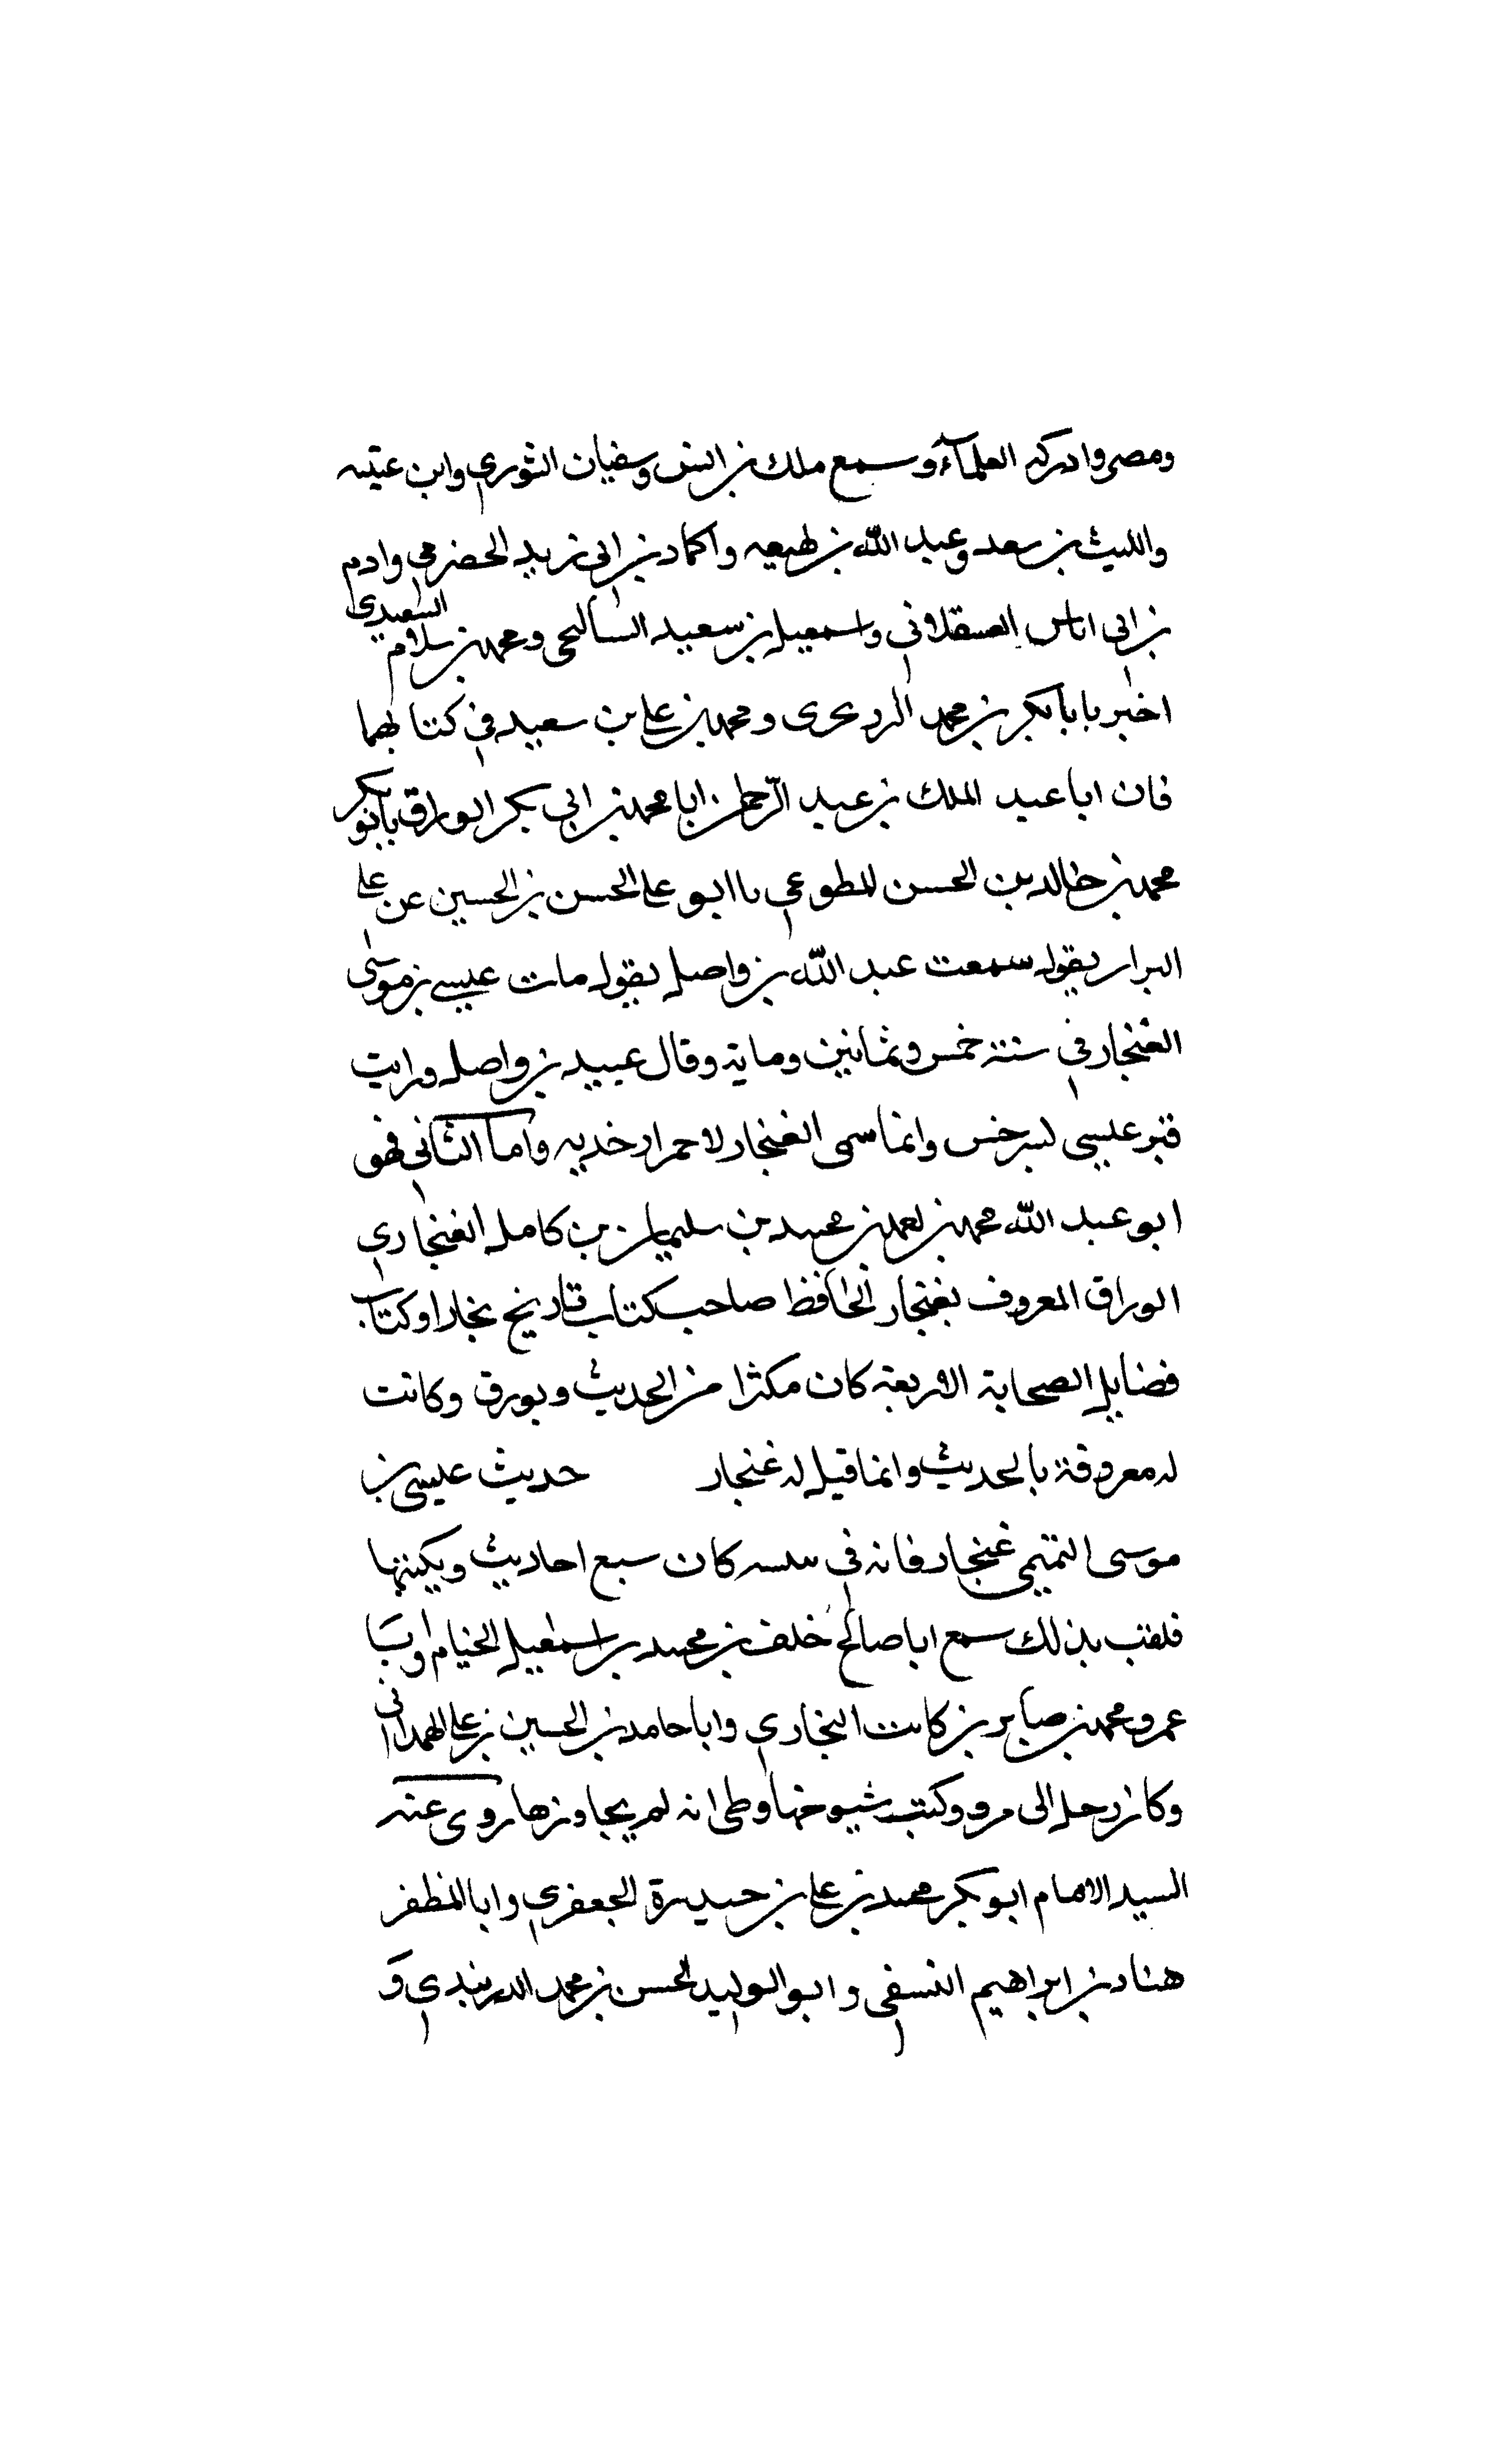 ومصر وادرك العلماء وسمع ملك بن انس وسفيان الثوري وابن عتيبه
والليث بن سعد وعبد الله بن لهيعه واكماد بن ابي زيد الحضرمي وادم
بن ابي اناس العسقلاني واسمعيل بن سعيد السالحى ومحمد بن سلام السعيدي
اخبر بابا بكر بن محمد ومحمد بن علي بن سعيد في كتابهما
فان ابا عبد الملك بن عبد الرحمن ابا محمد بن ابي بكر الوراق بابو بكر
محمد بن خالد بن الحسن المطوعي با ابو علي الحسن بن الحسين عن علي
البرار يقول سمعت عبد الله بن واصل يقول مات عيسى بن موسى
الغنجار في سنة خمس وثمانين وماية وقال عبيد بن واصل ورايت
قبر عيسى لسرخس وانما سمى الغنجار لاحمرار خديه واما الثاني فهو
ابو عبد الله محمد بن احمد بن محمد بن سليمان بن كامل الغنجاري
الوراق المعروف بغنجار الحافظ صاحب كتاب تاريخ بخارا وكتاب
فضايل الصحابة الاربعة كان مكثرا من الحديث وبورق وكانت
له معروفة بالحديث وانما قيل له غنجار حديث عيسى بن
موسى التميمى غنجار فانه في كان سبع احاديث ويكتبها
فلقب بذلك سمع ابا صالح خلف بن محمد بن اسمعيل الخيام
عمرو محمد بن صابر بن كاتب البخاري وابا حامد بن الحسين بن علي الهمداني
وكان رحل الى مرو وكتب شيوخها وظى انه لم يجاوزها روى عنه
السيد الامام ابو بكر محمد بن علي بن حيدرة الجعفري وابا المظفر
هناد بن ابراهيم النسفى وابو الوليد الحسن بن محمد الدربندي و